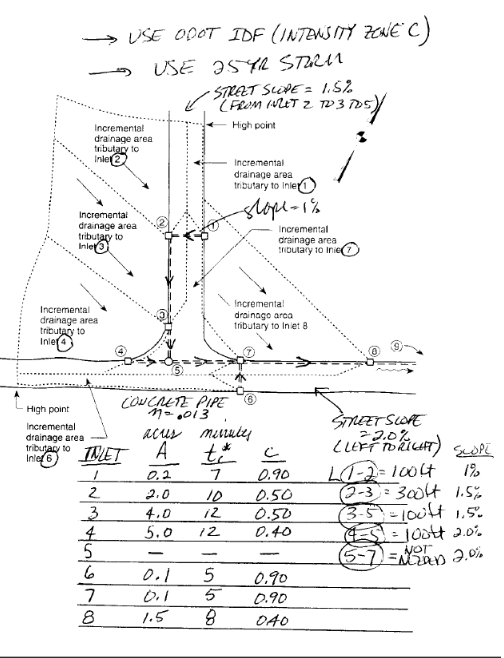 → USE ODOT IDF (INTENSITY ZONE C)
→ USE 25 YR STORM
STREET SLOPE = 1.5%
(FROM INLET 2 TO 3 TO 5)
High point
Incremental
drainage area
tributary to
Inlet 2
Incremental
drainage area
tributary to
Inlet 1
slope = 1%
2
1
Incremental
drainage area
tributary to
Inlet 3
Incremental
drainage area
tributary to Inlet 7
Incremental
drainage area
tributary to
Inlet 4
Incremental
drainage area
tributary to Inlet 8
3
4
5
7
8
9
6
High point
Incremental
drainage area
tributary to
Inlet 6
CONCRETE PIPE
n = .013
STREET SLOPE
= 2.0%
(LEFT TO RIGHT)
acres minutes
INLET A tc* C SLOPE
1 0.2 7 0.90 L 1-2 = 100 ft 1%
2 2.0 10 0.50 2-3 = 300 ft 1.5%
3 4.0 12 0.50 3-5 = 100 ft 1.5%
4 5.0 12 0.40 4-5 = 100 ft 2.0%
5 — — — 5-7 = NOT NEEDED 2.0%
6 0.1 5 0.90
7 0.1 5 0.90
8 1.5 8 0.40